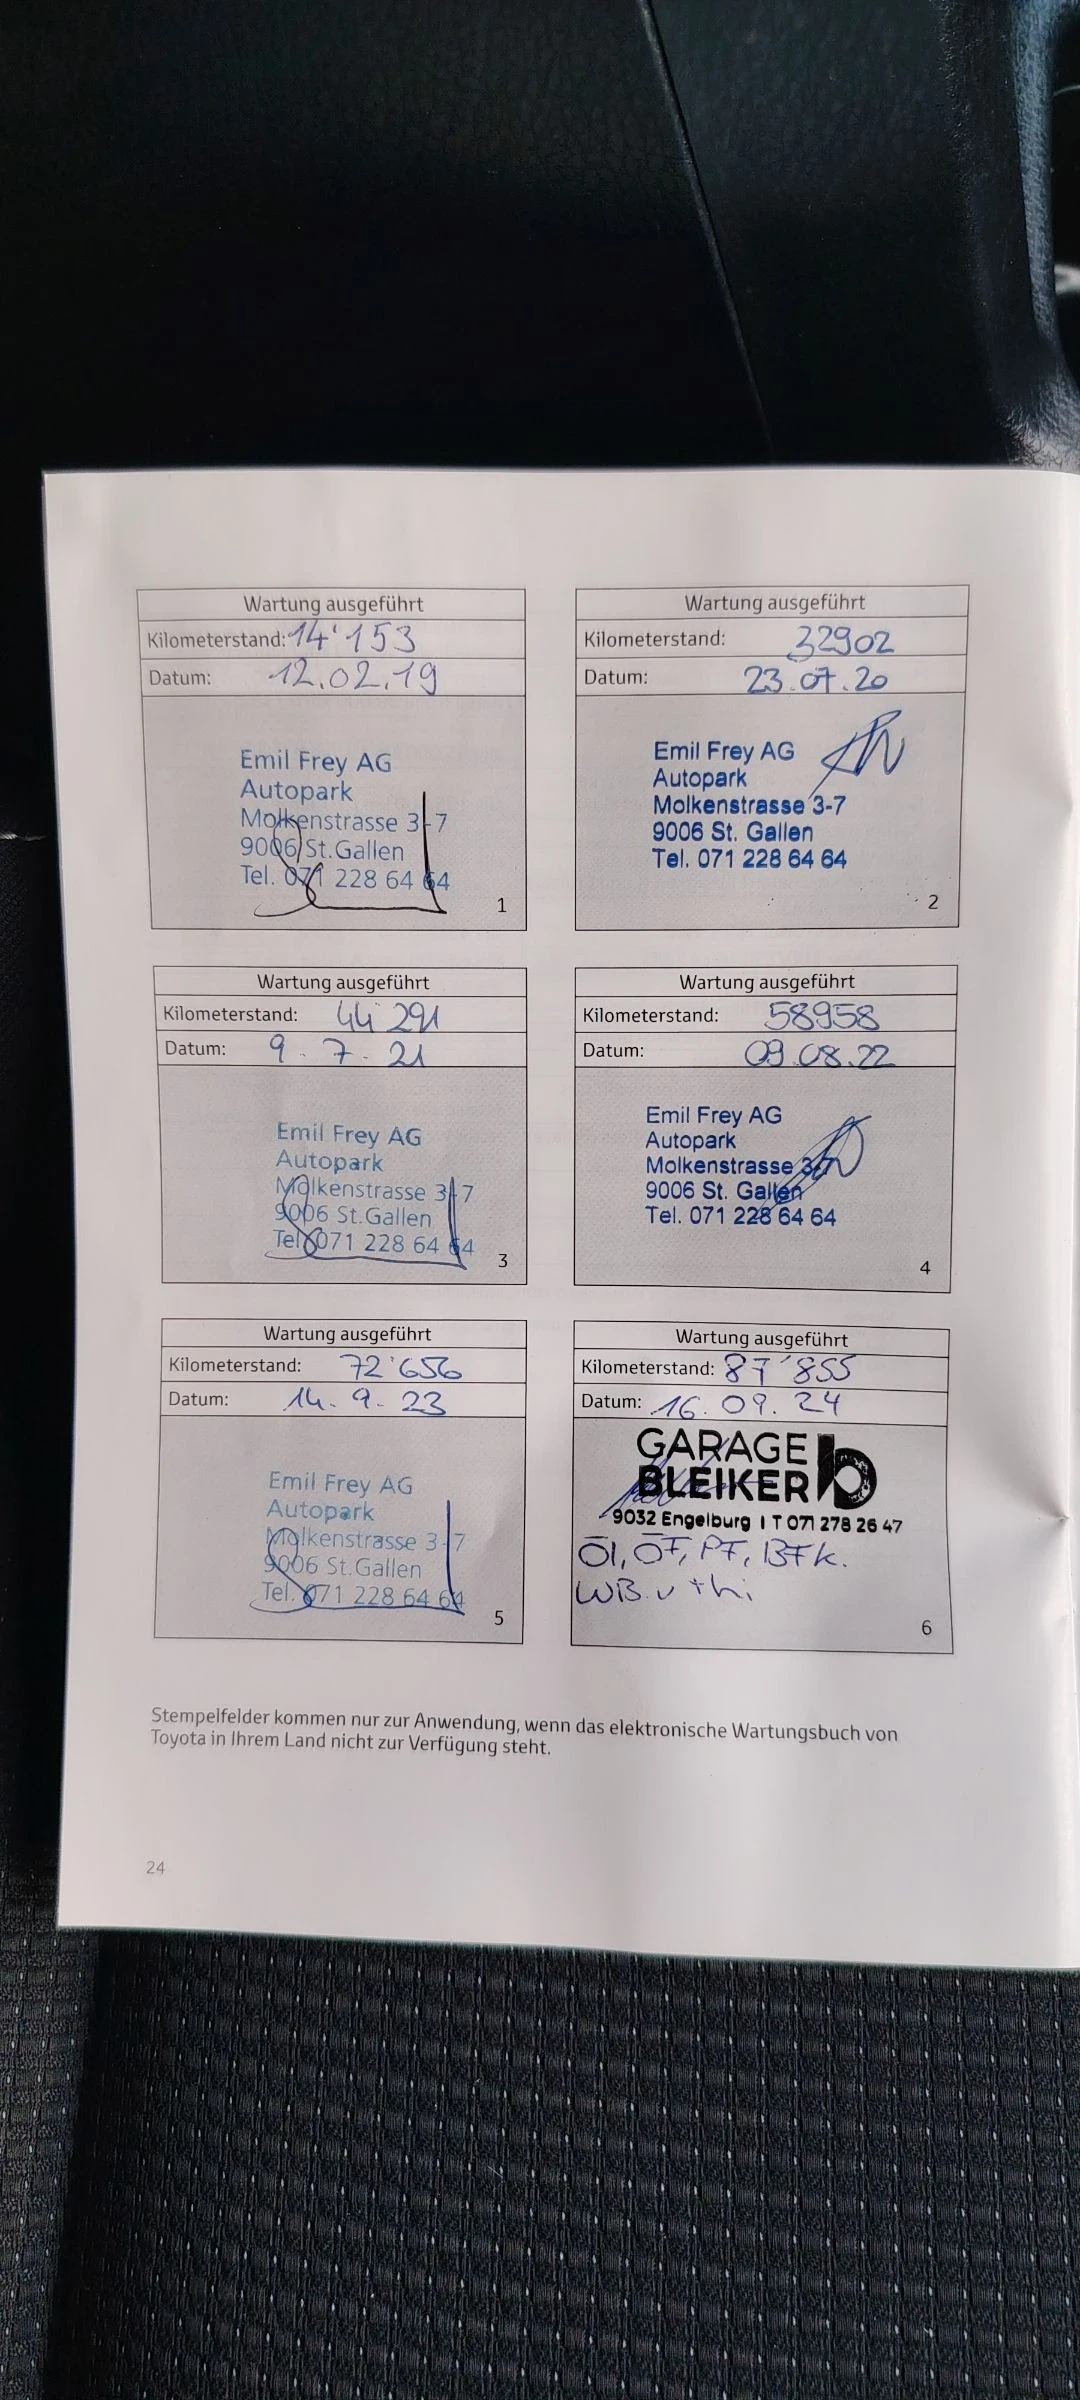 Wartung ausgeführt
Kilometerstand: 14'153
Datum: 12.02.19
Emil Frey AG
Autopark
Molkenstrasse 3-7
9006 St.Gallen
Tel. 071 228 64 64
1
Wartung ausgeführt
Kilometerstand: 32902
Datum: 23.07.20
Emil Frey AG
Autopark
Molkenstrasse 3-7
9006 St. Gallen
Tel. 071 228 64 64
2
Wartung ausgeführt
Kilometerstand: 44'291
Datum: 9.7.21
Emil Frey AG
Autopark
Molkenstrasse 3-7
9006 St.Gallen
Tel. 071 228 64 64
3
Wartung ausgeführt
Kilometerstand: 58958
Datum: 09.08.22
Emil Frey AG
Autopark
Molkenstrasse 3-7
9006 St. Gallen
Tel. 071 228 64 64
4
Wartung ausgeführt
Kilometerstand: 72'656
Datum: 14.9.23
Emil Frey AG
Autopark
Molkenstrasse 3-7
9006 St.Gallen
Tel. 071 228 64 64
5
Wartung ausgeführt
Kilometerstand: 87'855
Datum: 16.09.24
GARAGE
BLEIKER b
9032 Engelburg I T 071 278 26 47
Öl, ÖF, PF, BFK.
WB. v + hi
6
Stempelfelder kommen nur zur Anwendung, wenn das elektronische Wartungsbuch von
Toyota in Ihrem Land nicht zur Verfügung steht.
24